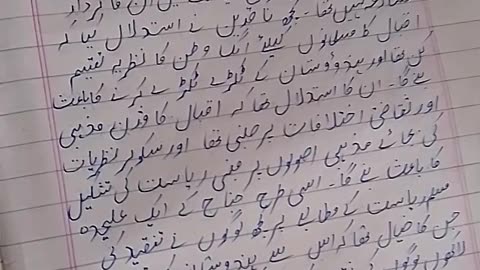 ان کا کردار
نہیں تھا۔ کچھ ناقدین نے استدلال کیا کہ
اقبال کا مسلمانوں کیلئے الگ وطن کا نظریہ تقسیم
کن تھا اور ہندوستان کے ٹکڑے ٹکڑے کرنے کا باعث
بنے گا۔ ان کا استدلال تھا کہ اقبال کا وژن مذہبی
اور ثقافتی اختلافات پر مبنی تھا اور سیکولر نظریات
کی بجائے مذہبی اصولوں پر مبنی ریاست کی تشکیل
کا باعث بنے گا۔ اسی طرح جناح کے ایک علیحدہ
مسلم ریاست کے مطالبے پر کچھ لوگوں نے تنقید کی
جن کا خیال تھا کہ اس سے ہندوستان
لاکھوں لوگوں